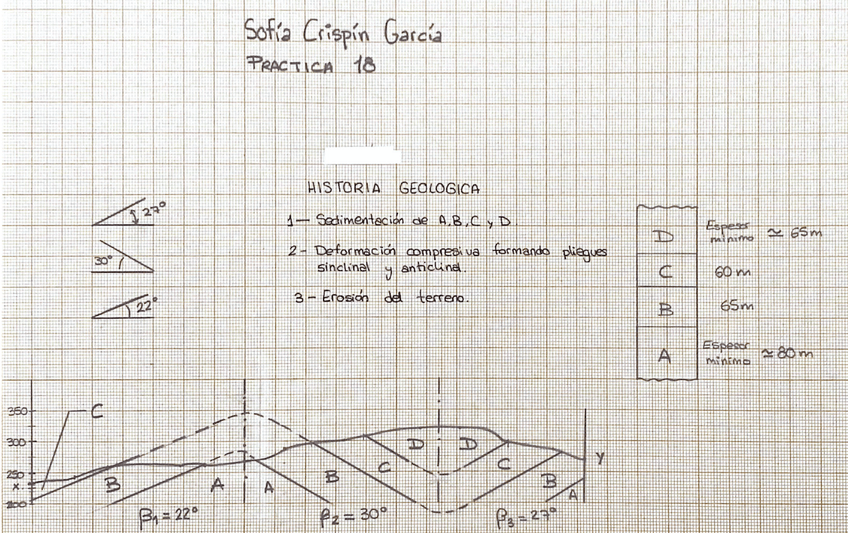 Sofía Crispín García
PRACTICA 18
HISTORIA GEOLOGICA
1— Sedimentación de A, B, C y D.
2- Deformación compresiva formando pliegues
sinclinal y anticlinal.
3- Erosión del terreno.
27°
30°
22°
D
Espesor
mínimo ≃ 65m
C
60 m
B
65m
A
Espesor
mínimo ≃ 80m
350
300
250
x
200
C
B
A
A
B
C
D
D
C
B
A
Y
β₁ = 22°
β₂ = 30°
β₃ = 27°